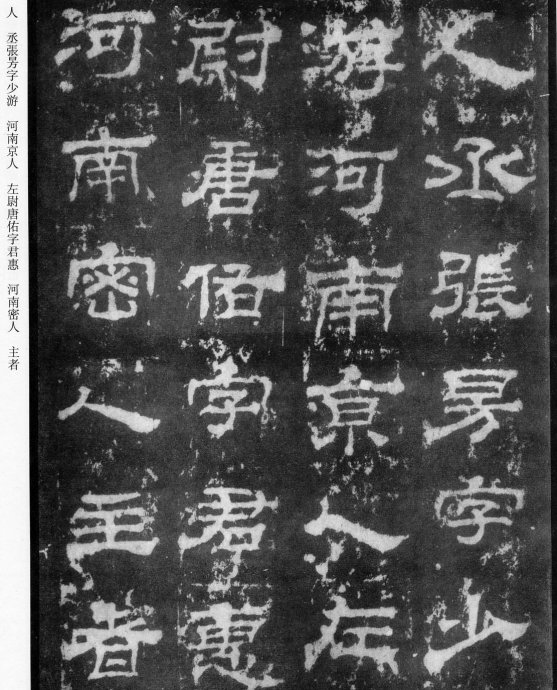 人丞張昉字少
游河南京人左
尉唐佑字君惠
河南密人主者
人　丞張昉字少游　河南京人　左尉唐佑字君惠　河南密人　主者